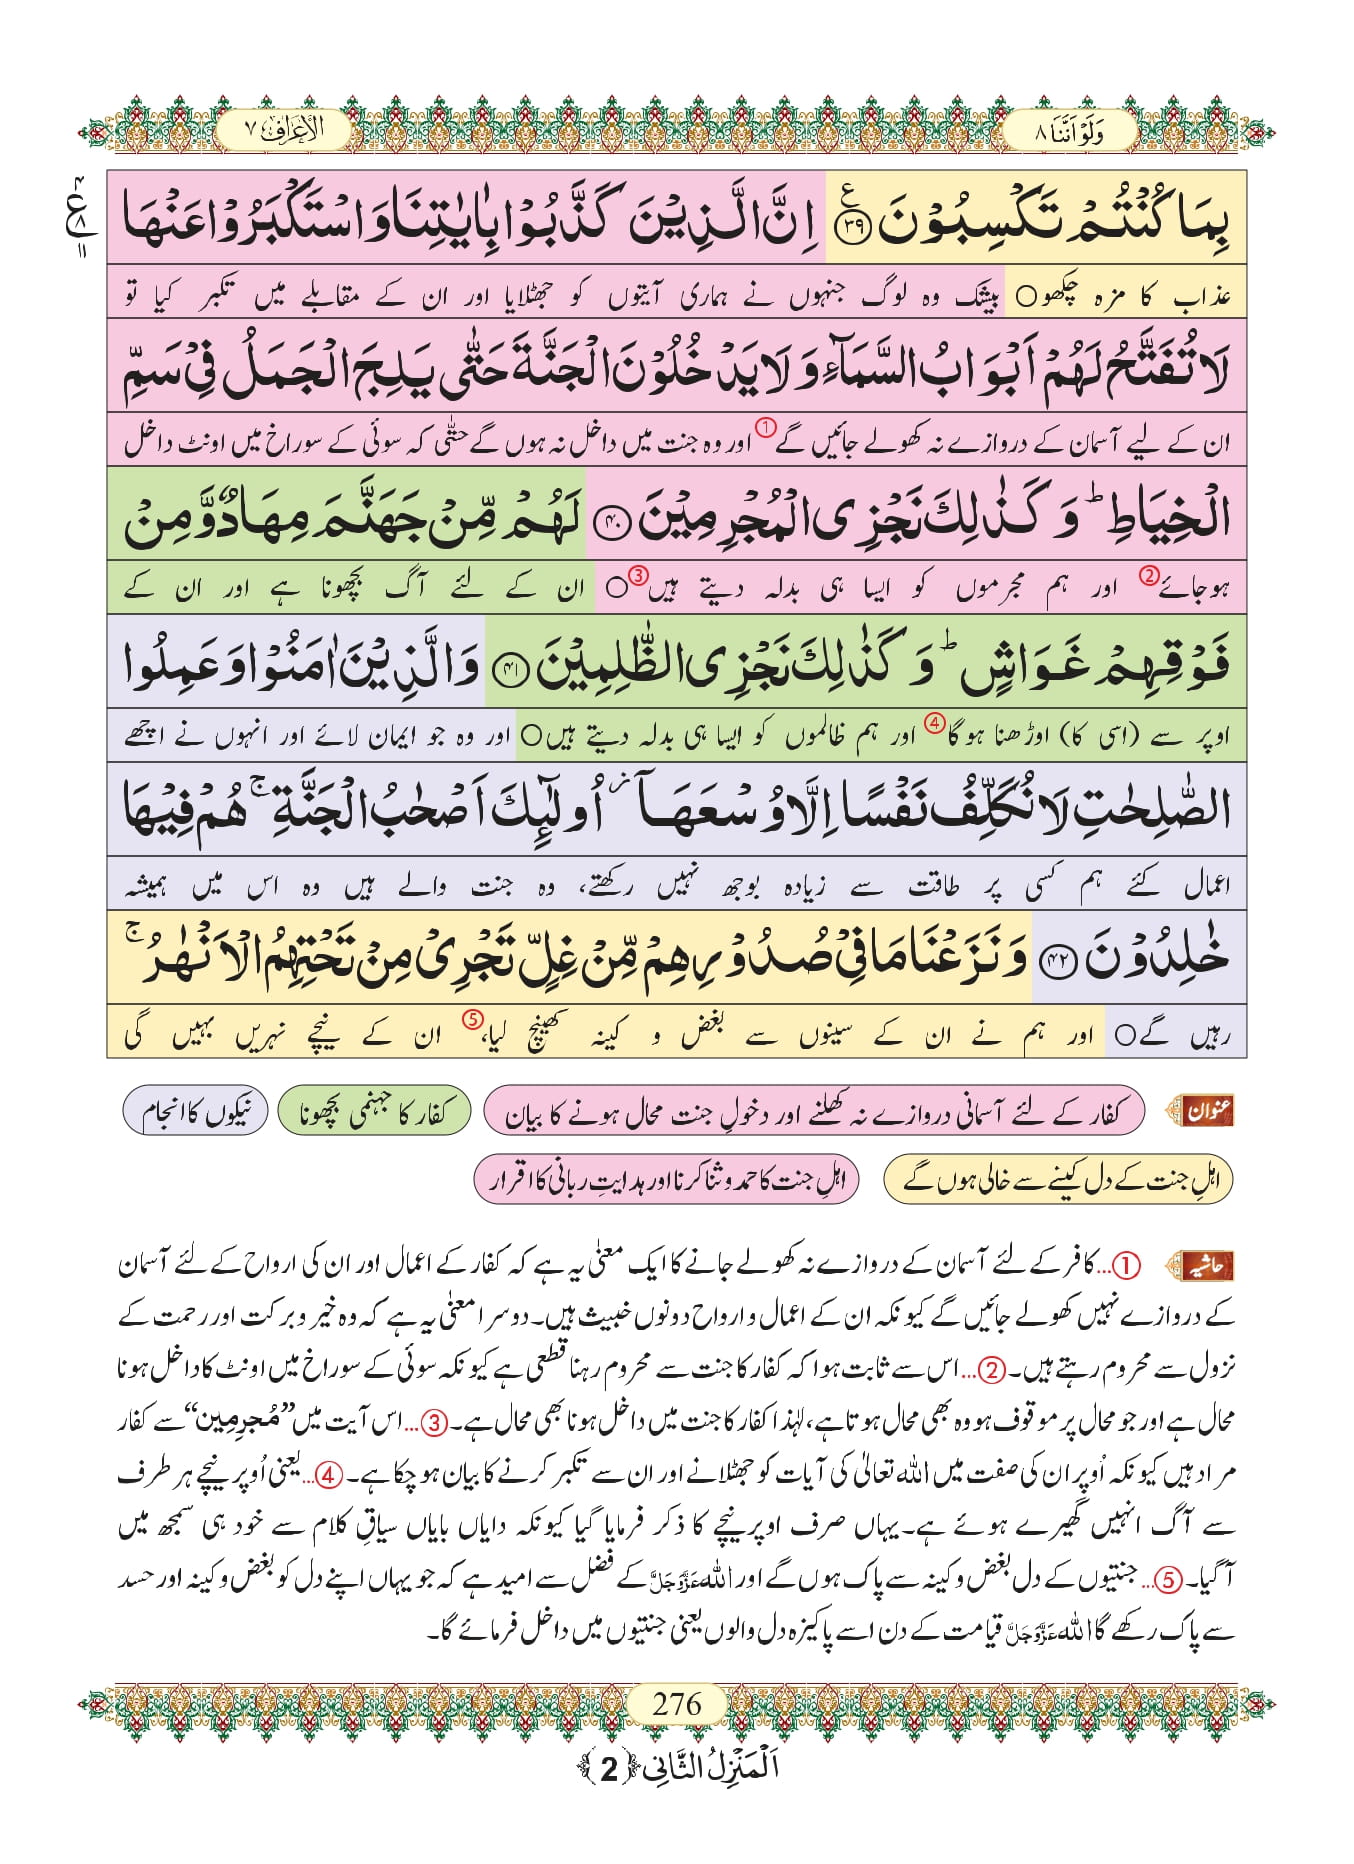 وَلَوْ اَنَّنَا ٨
الاعراف ٧
بِمَا كُنْتُمْ تَكْسِبُوْنَ ﴿۳۹﴾ اِنَّ الَّذِيْنَ كَذَّبُوْا بِاٰيٰتِنَا وَ اسْتَكْبَرُوْا عَنْهَا
عذاب کا مزہ چکھو○ بیشک وہ لوگ جنہوں نے ہماری آیتوں کو جھٹلایا اور ان کے مقابلے میں تکبر کیا تو
لَا تُفَتَّحُ لَهُمْ اَبْوَابُ السَّمَآءِ وَ لَا يَدْخُلُوْنَ الْجَنَّةَ حَتّٰى يَلِجَ الْجَمَلُ فِيْ سَمِّ
ان کے لیے آسمان کے دروازے نہ کھولے جائیں گے① اور وہ جنت میں داخل نہ ہوں گے حتّٰی کہ سوئی کے سوراخ میں اونٹ داخل
الْخِيَاطِ ؕ وَ كَذٰلِكَ نَجْزِی الْمُجْرِمِيْنَ ﴿۴۰﴾ لَهُمْ مِّنْ جَهَنَّمَ مِهَادٌ وَّ مِنْ
ہوجائے② اور ہم مجرموں کو ایسا ہی بدلہ دیتے ہیں③○ ان کے لئے آگ بچھونا ہے اور ان کے
فَوْقِهِمْ غَوَاشٍ ؕ وَ كَذٰلِكَ نَجْزِی الظّٰلِمِيْنَ ﴿۴۱﴾ وَ الَّذِيْنَ اٰمَنُوْا وَ عَمِلُوا
اوپر سے (اسی کا) اوڑھنا ہوگا④ اور ہم ظالموں کو ایسا ہی بدلہ دیتے ہیں○ اور وہ جو ایمان لائے اور انہوں نے اچھے
الصّٰلِحٰتِ لَا نُكَلِّفُ نَفْسًا اِلَّا وُسْعَهَاۤ ؗ اُولٰٓىِٕكَ اَصْحٰبُ الْجَنَّةِ ۚ هُمْ فِيْهَا
اعمال کئے ہم کسی پر طاقت سے زیادہ بوجھ نہیں رکھتے، وہ جنت والے ہیں وہ اس میں ہمیشہ
خٰلِدُوْنَ ﴿۴۲﴾ وَ نَزَعْنَا مَا فِيْ صُدُوْرِهِمْ مِّنْ غِلٍّ تَجْرِیْ مِنْ تَحْتِهِمُ الْاَنْهٰرُ ۚ
رہیں گے○ اور ہم نے ان کے سینوں سے بغض و کینہ کھینچ لیا،⑤ ان کے نیچے نہریں بہیں گی
عنوان کفار کے لئے آسمانی دروازے نہ کھلنے اور دخولِ جنت محال ہونے کا بیان کفار کا جہنمی بچھونا نیکوں کا انجام
اہلِ جنت کے دل کینے سے خالی ہوں گے اہلِ جنت کا حمد و ثنا کرنا اور ہدایتِ ربانی کا اقرار
حاشیہ ①...کافر کے لئے آسمان کے دروازے نہ کھولے جانے کا ایک معنٰی یہ ہے کہ کفار کے اعمال اور ان کی ارواح کے لئے آسمان
کے دروازے نہیں کھولے جائیں گے کیونکہ ان کے اعمال و ارواح دونوں خبیث ہیں۔ دوسرا معنٰی یہ ہے کہ وہ خیر و برکت اور رحمت کے
نزول سے محروم رہتے ہیں۔ ②...اس سے ثابت ہوا کہ کفار کا جنت سے محروم رہنا قطعی ہے کیونکہ سوئی کے سوراخ میں اونٹ کا داخل ہونا
محال ہے اور جو محال پر موقوف ہو وہ بھی محال ہوتا ہے، لہٰذا کفار کا جنت میں داخل ہونا بھی محال ہے۔ ③...اس آیت میں ”مُجرِمِین“ سے کفار
مراد ہیں کیونکہ اُوپر ان کی صفت میں اللہ تعالیٰ کی آیات کو جھٹلانے اور ان سے تکبر کرنے کا بیان ہو چکا ہے۔ ④...یعنی اُوپر نیچے ہر طرف
سے آگ انہیں گھیرے ہوئے ہے۔ یہاں صرف اوپر نیچے کا ذکر فرمایا گیا کیونکہ دایاں بایاں سیاقِ کلام سے خود ہی سمجھ میں
آ گیا۔ ⑤...جنتیوں کے دل بغض و کینہ سے پاک ہوں گے اور اللہ عَزَّوَجَلَّ کے فضل سے امید ہے کہ جو یہاں اپنے دل کو بغض و کینہ اور حسد
سے پاک رکھے گا اللہ عَزَّوَجَلَّ قیامت کے دن اسے پاکیزہ دل والوں یعنی جنتیوں میں داخل فرمائے گا۔
276
اَلْمَنْزِلُ الثَّانِی ﴿2﴾